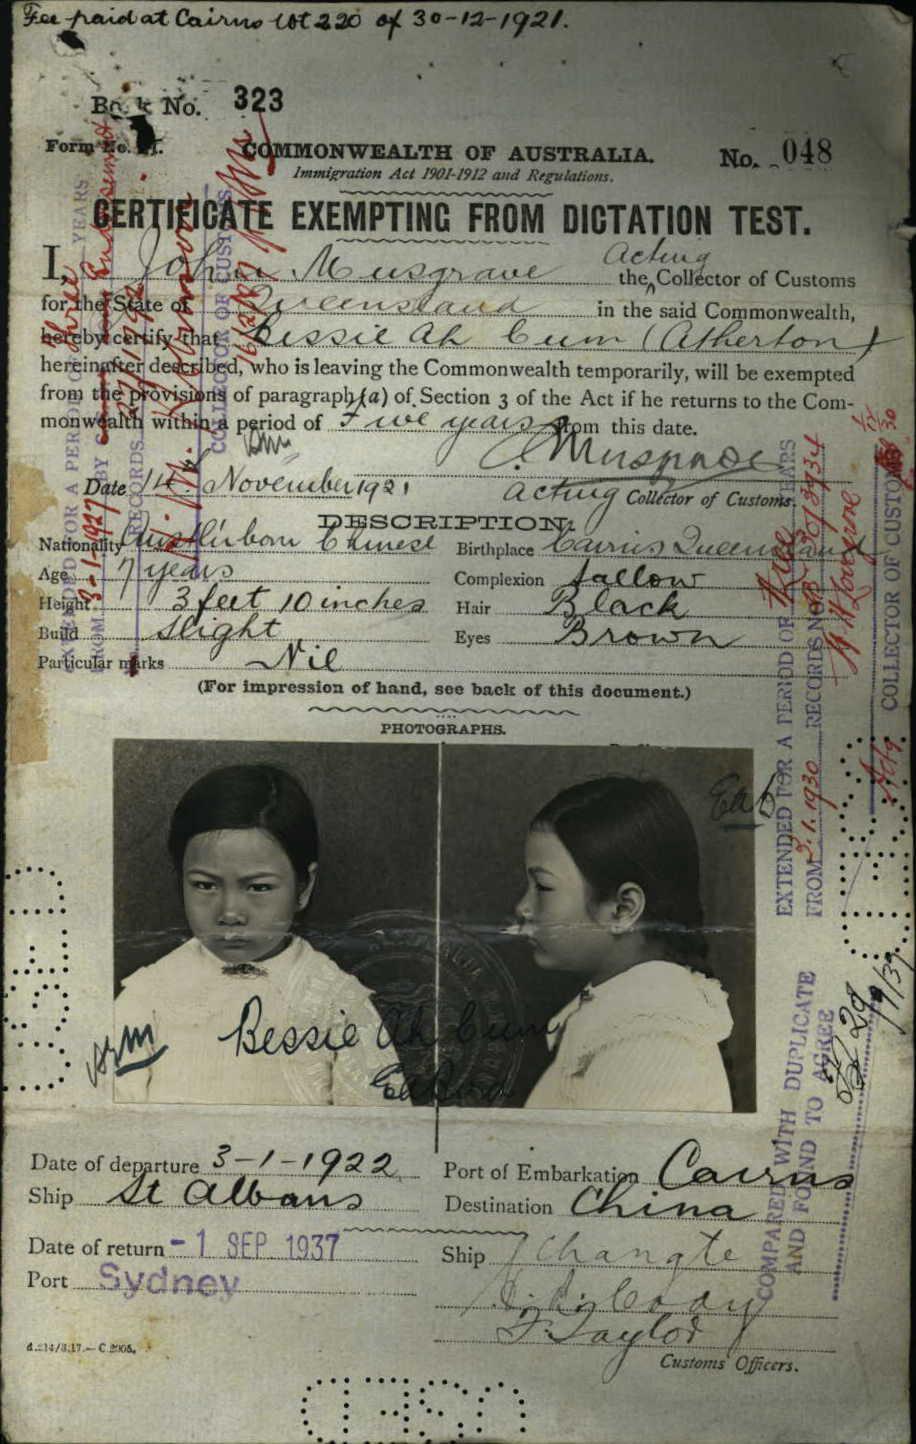 Fee paid at Cairns lot 220 of 30-12-1921.
Book No. 323
Form No. 21.
COMMONWEALTH OF AUSTRALIA.
No. 048
Immigration Act 1901-1912 and Regulations.
CERTIFICATE EXEMPTING FROM DICTATION TEST.
I, John Musgrave the Acting Collector of Customs
for the State of Queensland in the said Commonwealth,
hereby certify that Bessie Ah Cum (Atherton)
hereinafter described, who is leaving the Commonwealth temporarily, will be exempted
from the provisions of paragraph (a) of Section 3 of the Act if he returns to the Com-
monwealth within a period of Five years from this date.
Musgrave
Date 14. November 1921
Acting Collector of Customs.
DESCRIPTION.
Nationality born Chinese
Birthplace Cairns Queensland
Age 7 years
Complexion Sallow
Height 3 feet 10 inches
Hair Black
Build Slight
Eyes Brown
Particular marks Nil
(For impression of hand, see back of this document.)
PHOTOGRAPHS.
Bessie Ah Cum
Date of departure 3-1-1922
Port of Embarkation Cairns
Ship St Albans
Destination China
Date of return -1 SEP 1937
Ship Changte
Port Sydney
F. Taylor
Customs Officers.
d.214/3.17.—C.2005.
EXTENDED FOR A PERIOD OF three YEARS
FROM 3-1-1927 BY
RECORDS
COLLECTOR OF CUSTOMS
EXTENDED FOR A PERIOD OF three YEARS
FROM 3.1.1930 RECORDS NO
Actg COLLECTOR OF CUSTOMS
COMPARED WITH DUPLICATE
AND FOUND TO AGREE
USED